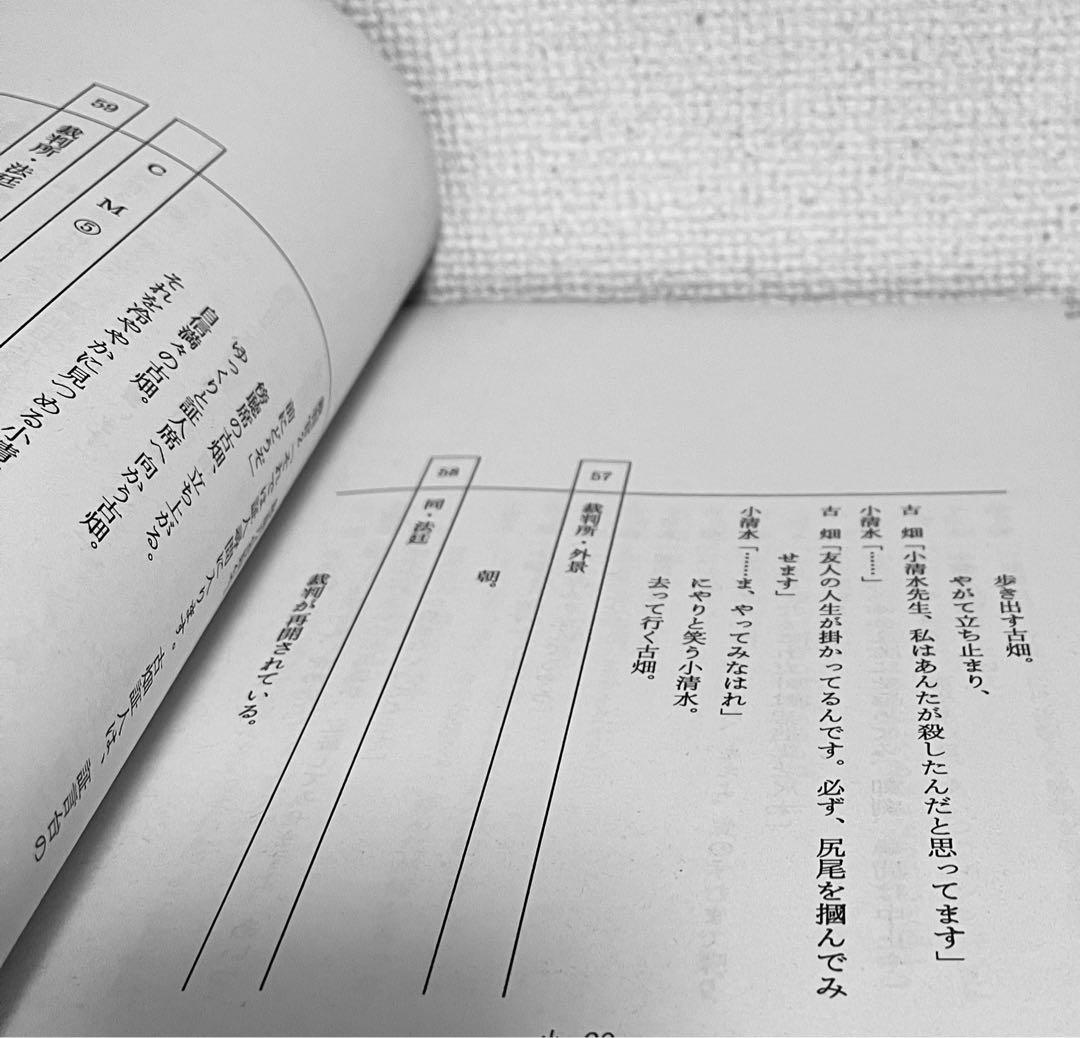 歩き出す古畑。
やがて立ち止まり、
古　畑「小清水先生、私はあんたが殺したんだと思ってます」
小清水「……」
古　畑「友人の人生が掛かってるんです。必ず、尻尾を摑んでみ
せます」
小清水「……ま、やってみなはれ」
にやりと笑う小清水。
去って行く古畑。
57 裁判所・外景
朝。
58 同・法廷
裁判が再開されている。
「それでは証人尋問に入ります。古畑証人は、証言台の
前にどうぞ」
傍聴席の古畑、立ち上がる。
ゆっくりと証人席へ向かう古畑。
自信満々の古畑。
それを冷ややかに見つめる小清
CM⑤
59 裁判所・法廷